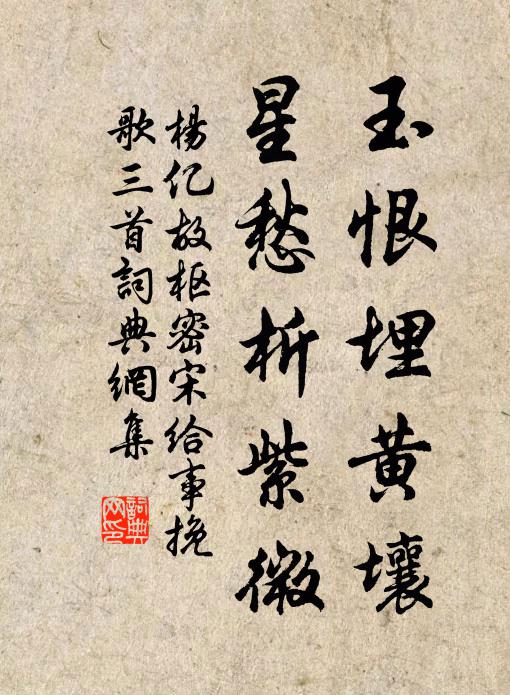 玉恨埋黄壤
星愁析紫微
楊亿故枢密宋给事挽
歌三首詞典網集
詞典网印